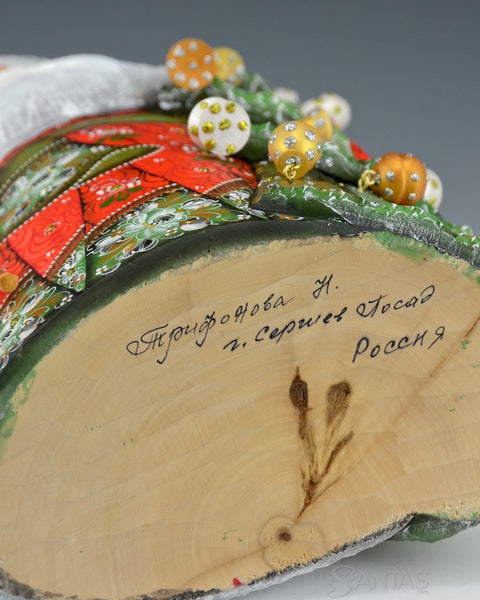 Трифонова Н.
г. Сергиев Посад
Россия
SANTAS